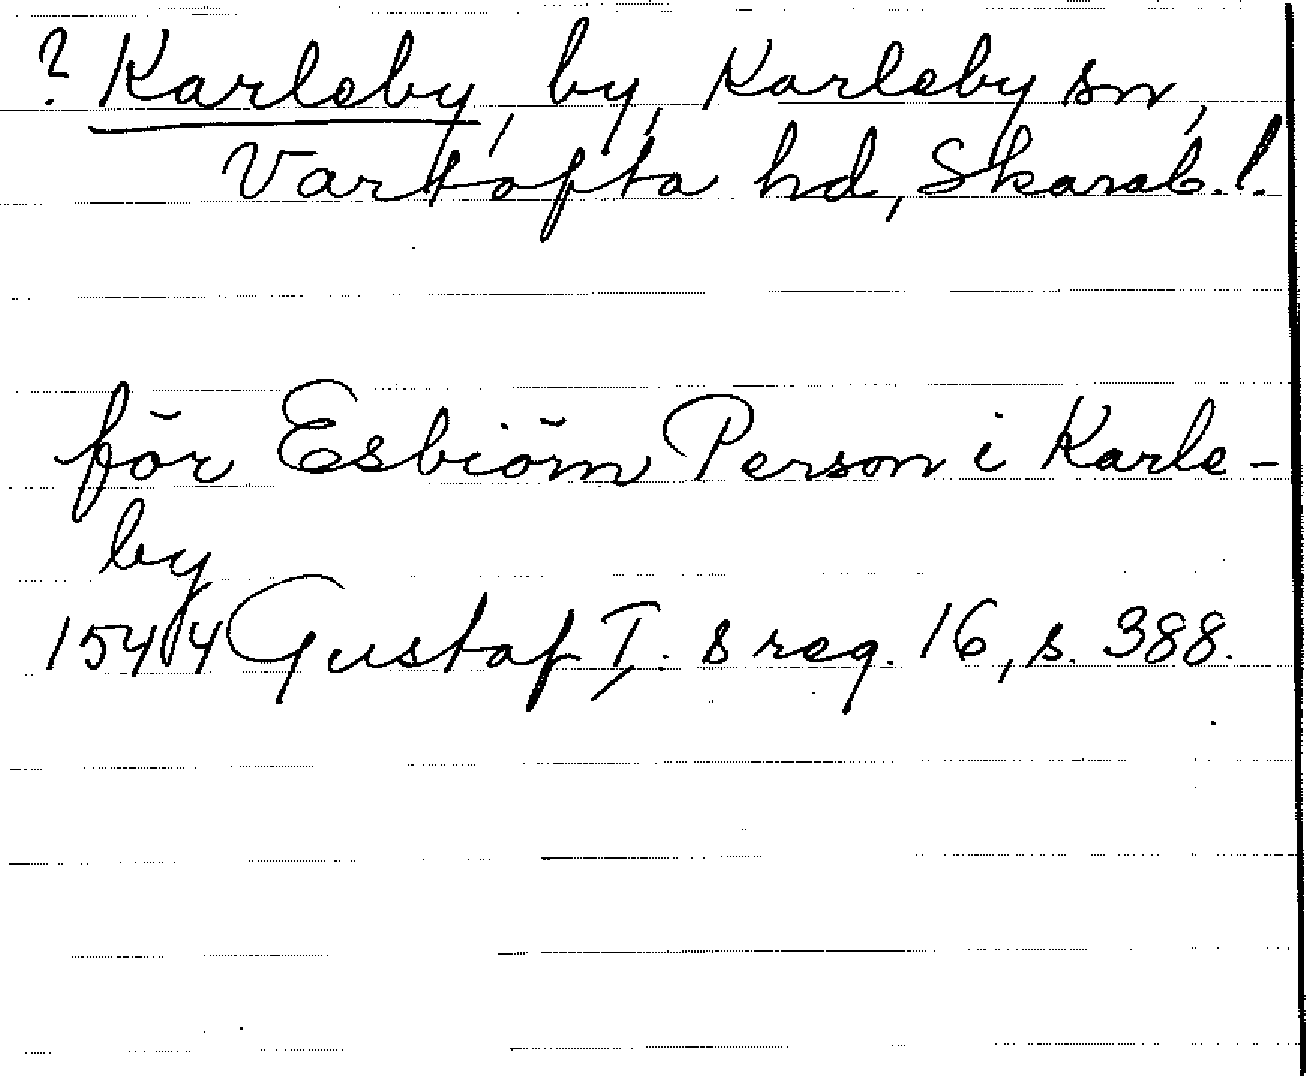 ? Karleby, by, Karleby sn,
Vartofta hd, Skarab. l.
för Esbiörn Person i Karle-
by
1544 Gustaf I. s reg. 16, s. 388.